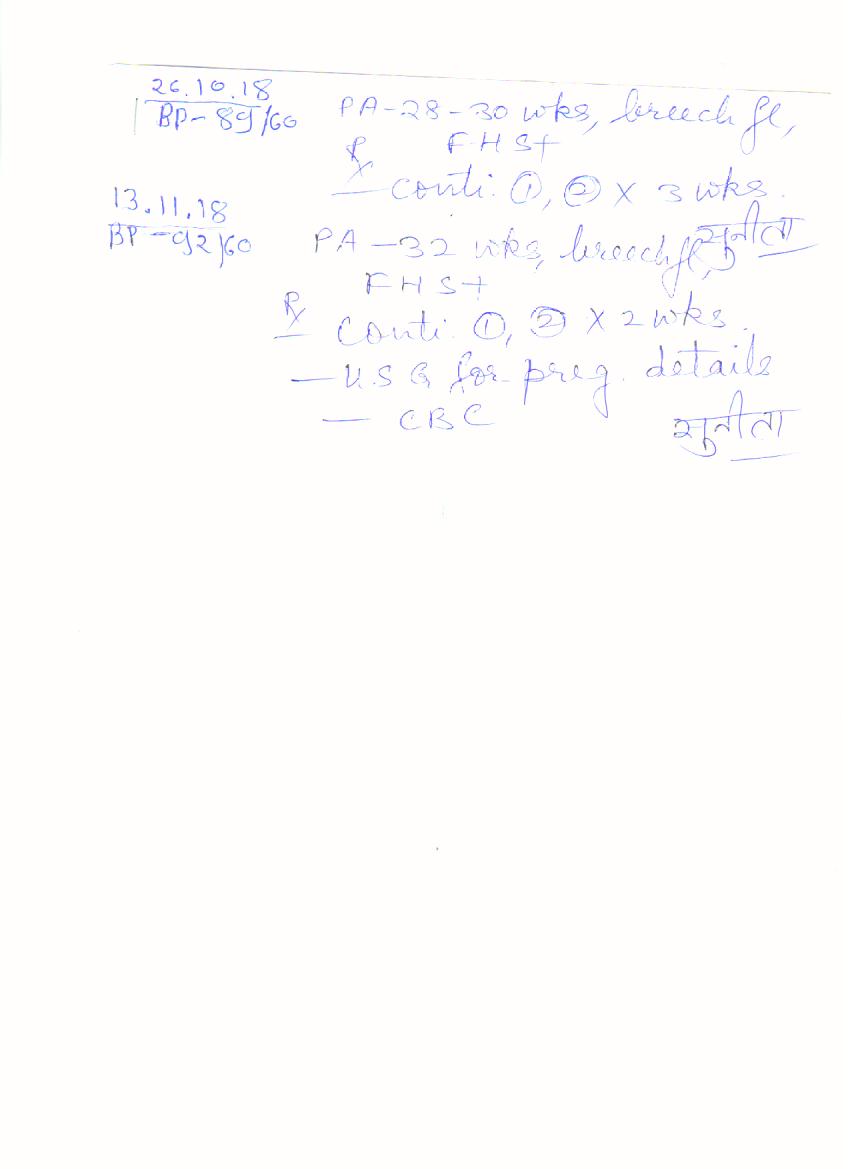 26.10.18
BP - 89/60 PA - 28 - 30 wks, breech fl,
FHS+
Rx
— conti. ①, ② x 3 wks.
सुनीता
13.11.18
BP - 92/60 PA - 32 wks, breech fl,
FHS+
Rx
— Conti. ①, ② x 2 wks.
— USG for preg. details
— CBC
सुनीता